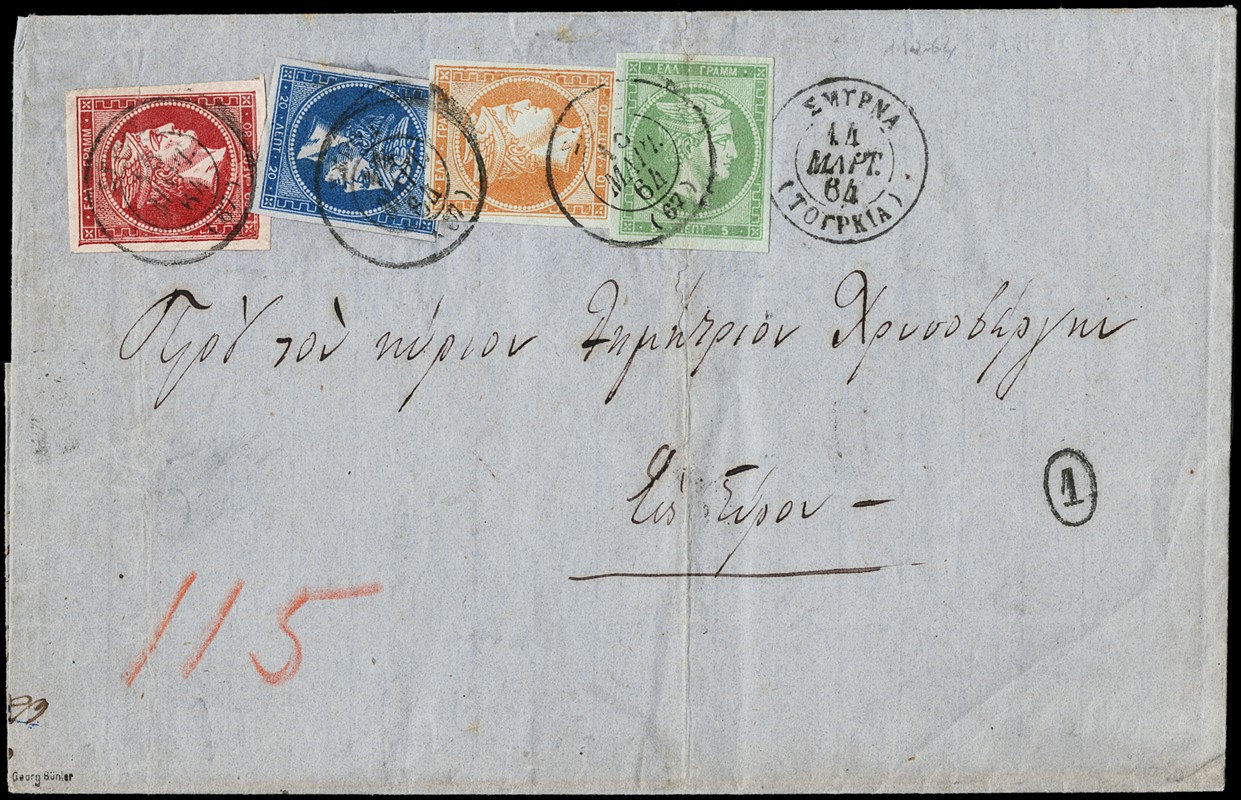 112-64
ΕΛΛ ΓΡΑΜΜ
20 ΛΕΠΤ 20
ΕΛΛ ΓΡΑΜΜ
10 ΛΕΠΤ 10
ΕΛΛ ΓΡΑΜΜ
ΛΕΠΤ 5
ΜΑΡΤ.
64
(67)
64
(67)
ΣΜΥΡΝΑ
14
ΜΑΡΤ.
64
(ΤΟΥΡΚΙΑ)
Πρὸς τὸν κύριον Δημήτριον Χρυσοβέργην
Εἰς Σύρον —
1
115
99
Georg Bühler